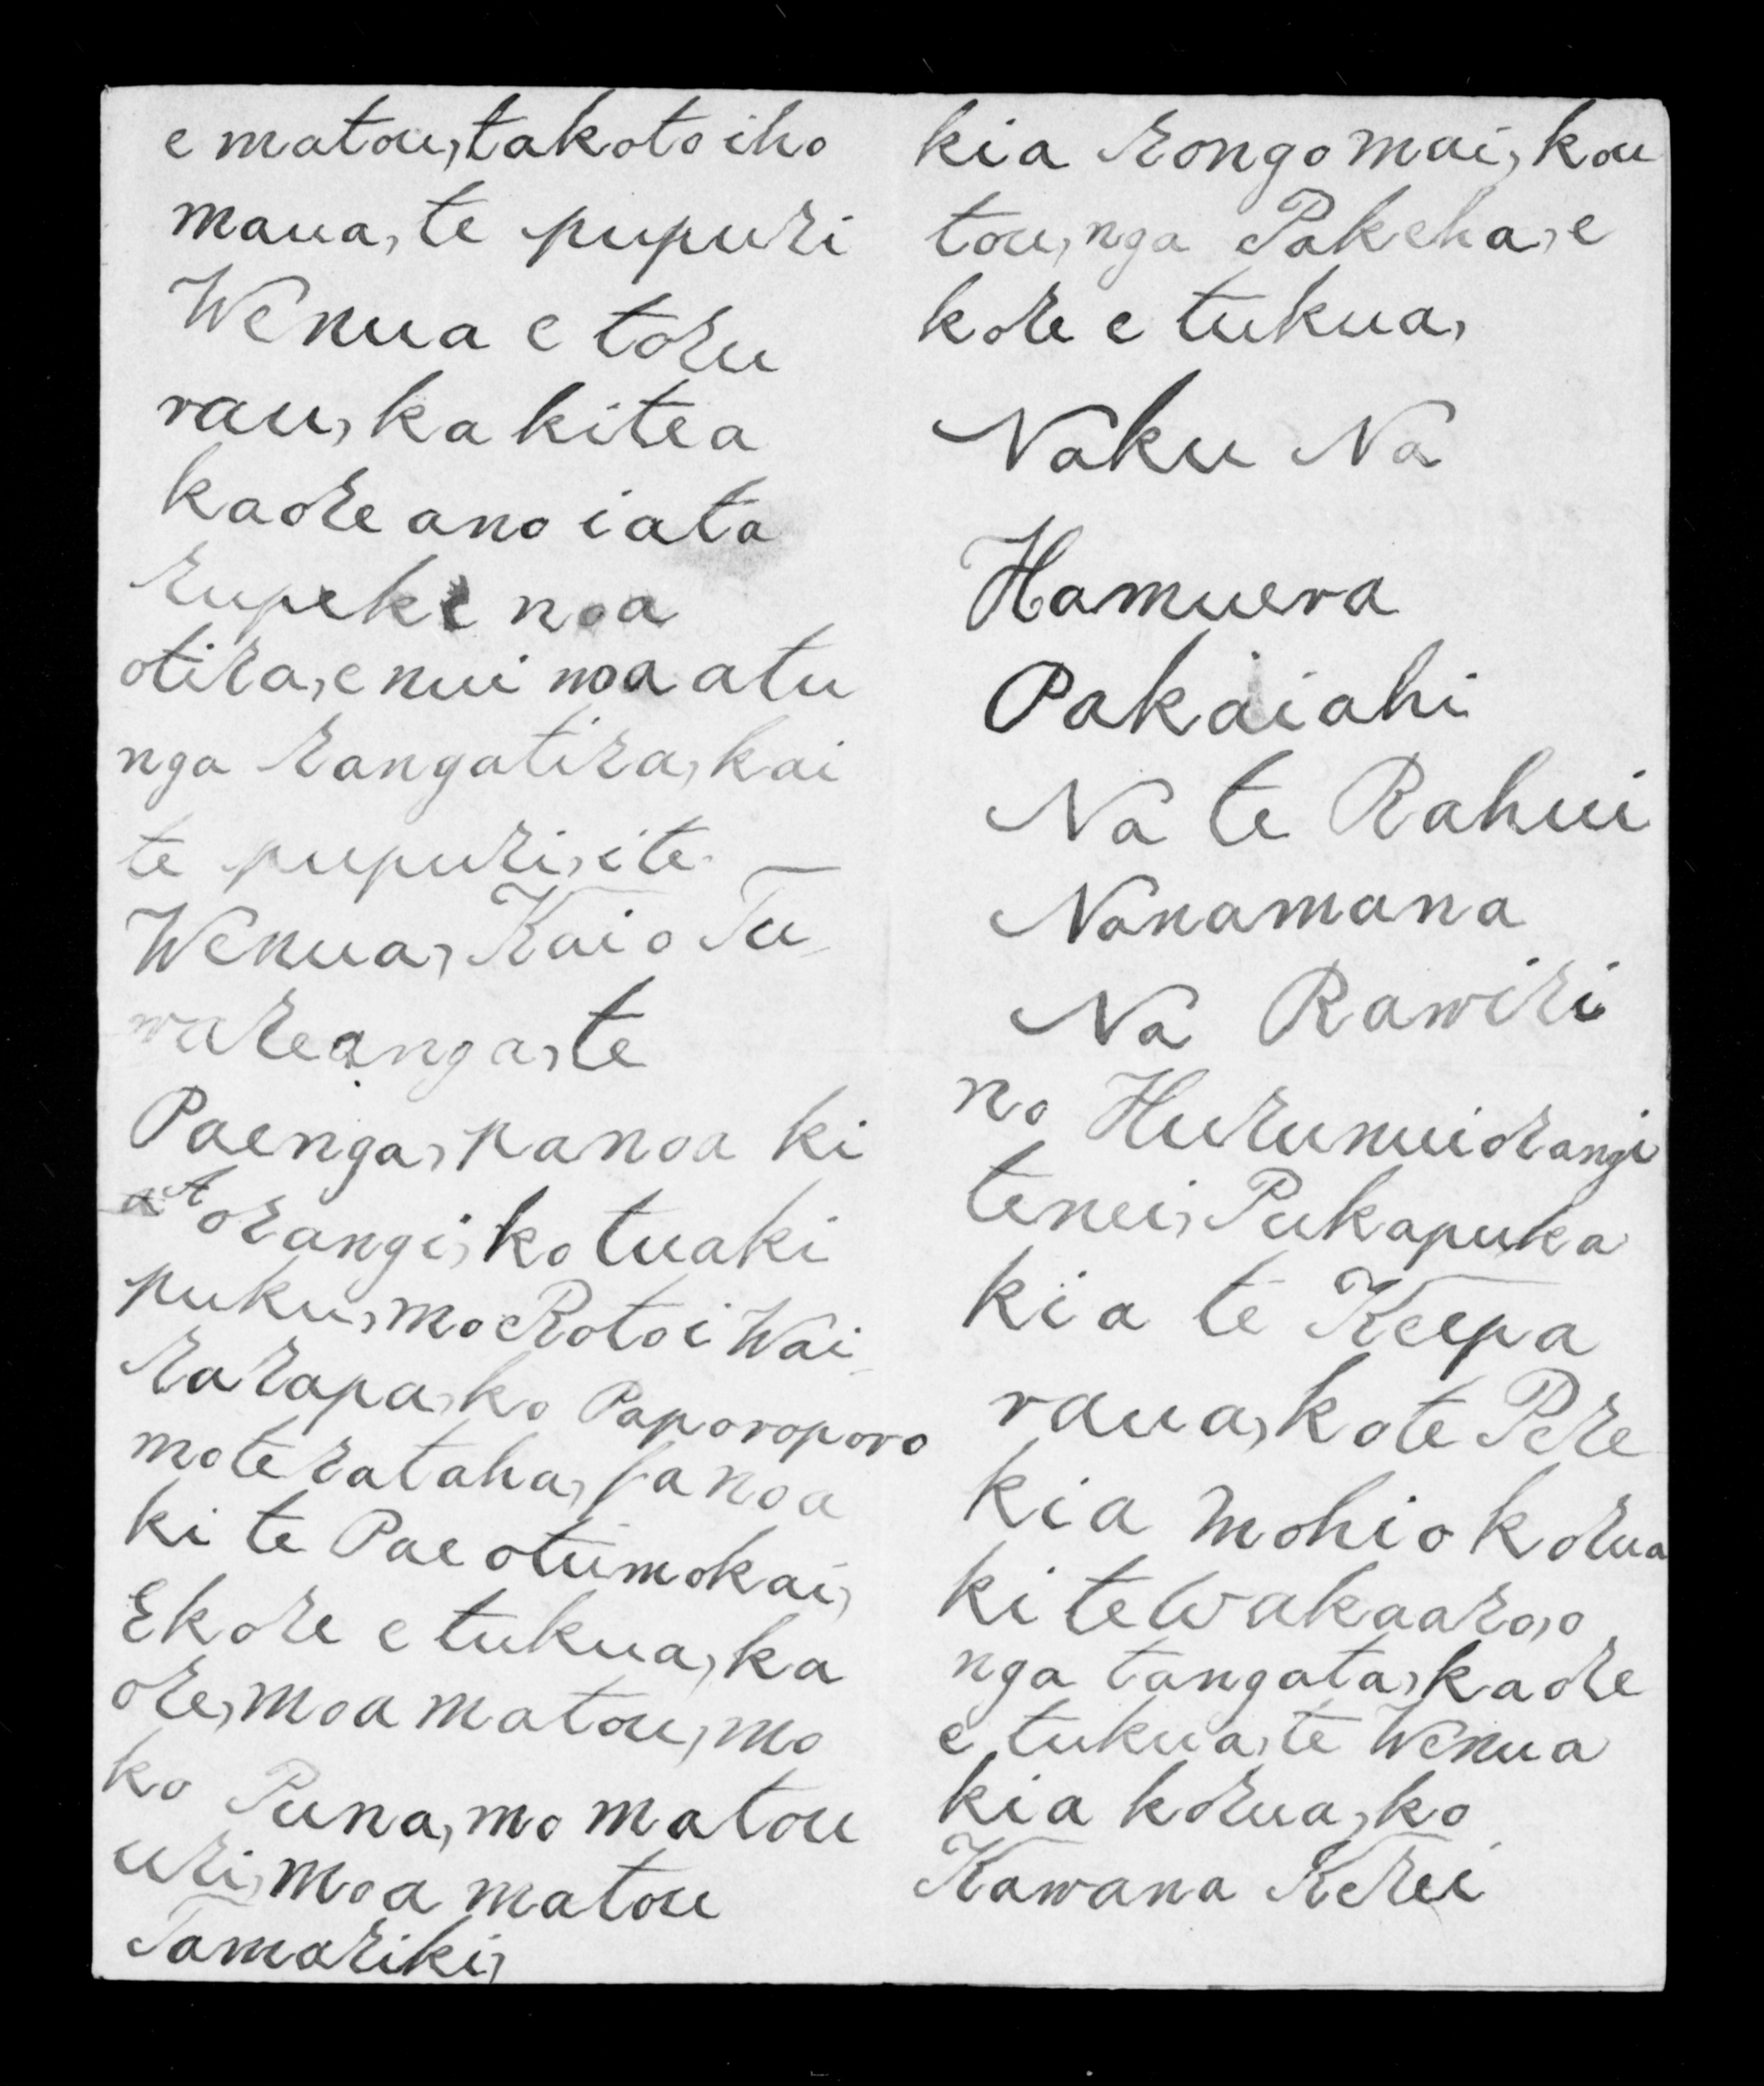 e matou, takoto iho
maua, te pupuri
Wenua e toru
rau, ka kitea
kaore ano i ata
rupeke noa
otira, e nui noa atu
nga Rangatira, kai
te pupuri, i te
Wenua, Kai o Tu
wareanga, te
Paenga, panoa ki
Aorangi, ko tuaki
puku, mo Roto i Wai
rarapa, ko Paporoporo
mo te rataha, panoa
ki te Pae otumokai,
Ekore e tukua, ka
ore, moa matou, mo
ko Puna, mo matou
uri, moa matou
Tamariki,
kia Rongo mai, kou
tou, nga Pakeha, e
kore e tukua,
Naku Na
Hamuera
Pakaiahi
Na te Rahui
Nanamana
Na Rawiri
no Hurunuiorangi
tenei, Pukapuka
kia te Keepa
raua, ko te Pere
kia mohio korua
ki te Wakaaro, o
nga tangata, kaore
e tukua, te Wenua
kia korua, ko
Kawana Kerei